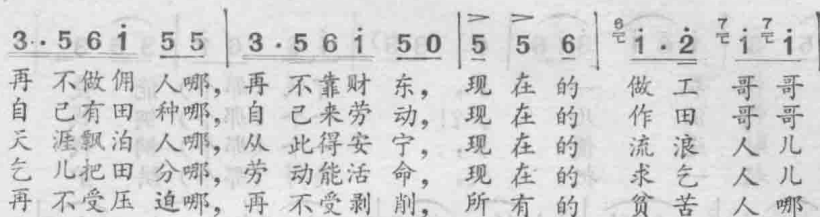 3·56i 55 | 3·56i 50 | 5 5 6 | 6 i·2 7 i 7 i
再 不做佣 人哪, 再 不靠财 东, 现 在 的 做 工 哥 哥
自 己有田 种哪, 自 己来劳 动, 现 在 的 作 田 哥 哥
天 涯飘泊 人哪, 从 此得安 宁, 现 在 的 流 浪 人 儿
乞 儿把田 分哪, 劳 动能活 命, 现 在 的 求 乞 人 儿
再 不受压 迫哪, 再 不受剥 削, 所 有 的 贫 苦 人 哪